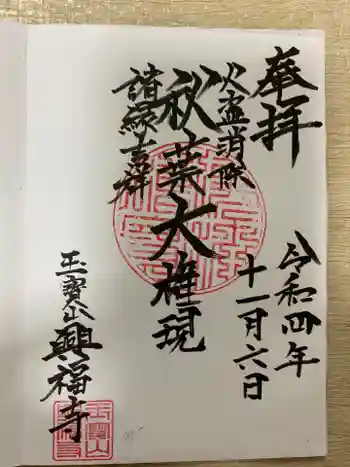 奉拝
令和四年
十一月六日
火盗消除
秋葉大権現
諸縁吉祥
玉寳山
興福寺